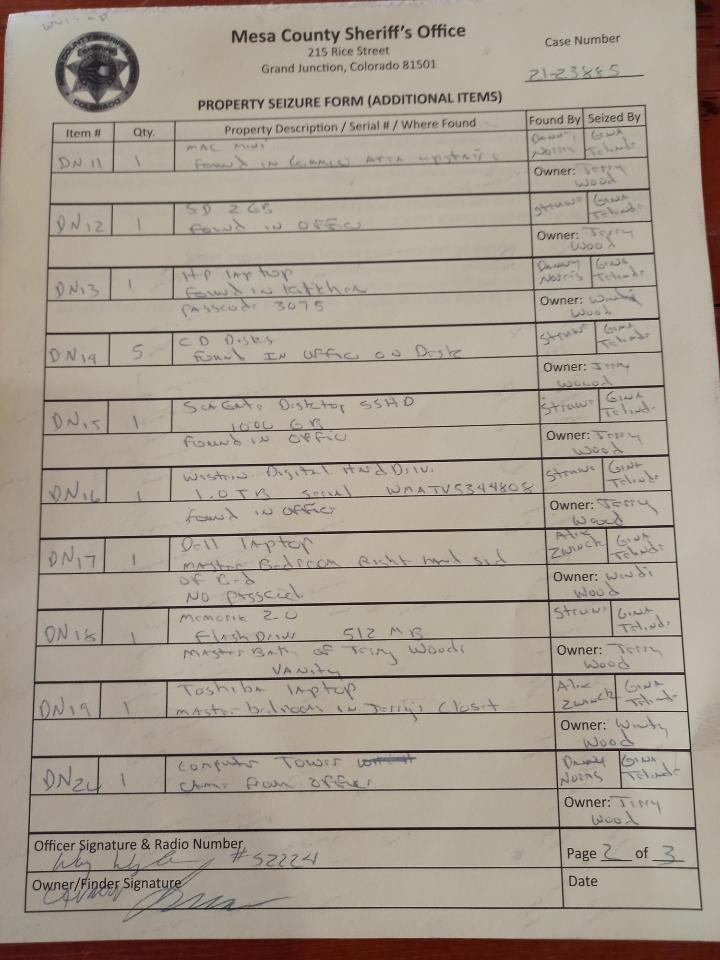 Mesa County Sheriff's Office
215 Rice Street
Grand Junction, Colorado 81501
Case Number
21-23885
MESA COUNTY SHERIFF
COLORADO
PROPERTY SEIZURE FORM (ADDITIONAL ITEMS)
Item # Qty. Property Description / Serial # / Where Found Found By Seized By
DN 11 1 MAC MINI Danny Norris Gina
Found in Common Area upstairs
Owner: Jerry Wood
DN12 1 SD 2 GB Gina
Found in Office
Owner: Jerry Wood
DN13 1 HP laptop Danny Norris Gina
Found in Kitchen
Passcode 3075
Owner: Wood
DN14 5 CD Disks Gina
Found IN Office on Desk
Owner: Jerry Wood
DN15 1 Seagate Desktop SSHD Gina
1000 GB
Found in Office
Owner: Jerry Wood
DN16 1 Western Digital Hard Drive Gina
1.0 TB Serial WMATV5344808
Found in office
Owner: Jerry Wood
DN17 1 Dell laptop Alex Gina
Master Bedroom Right hand sid
of Bed
No passcod
Owner: Windi Wood
DN18 1 2.0 Gina
Flash Drive 512 MB
Master Bath of Jerry Woods
Vanity
Owner: Jerry Wood
DN19 1 Toshiba laptop Alex Gina
master bedroom in Jerry's Closet
Owner: Windy Wood
1 Computer Tower Danny Norris Gina
Came From office
Owner: Jerry Wood
Officer Signature & Radio Number #S2224
Page 2 of 3
Owner/Finder Signature
Date